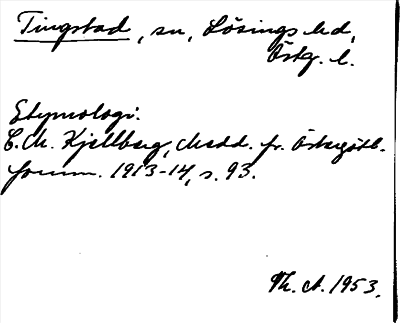 Tingstad, sn, Lösings hd,
Östg. l.
Etymologi:
C. M. Kjellberg, Medd. fr. Östergötl.
fornm. 1913-14, s. 93.
Th. A. 1953.